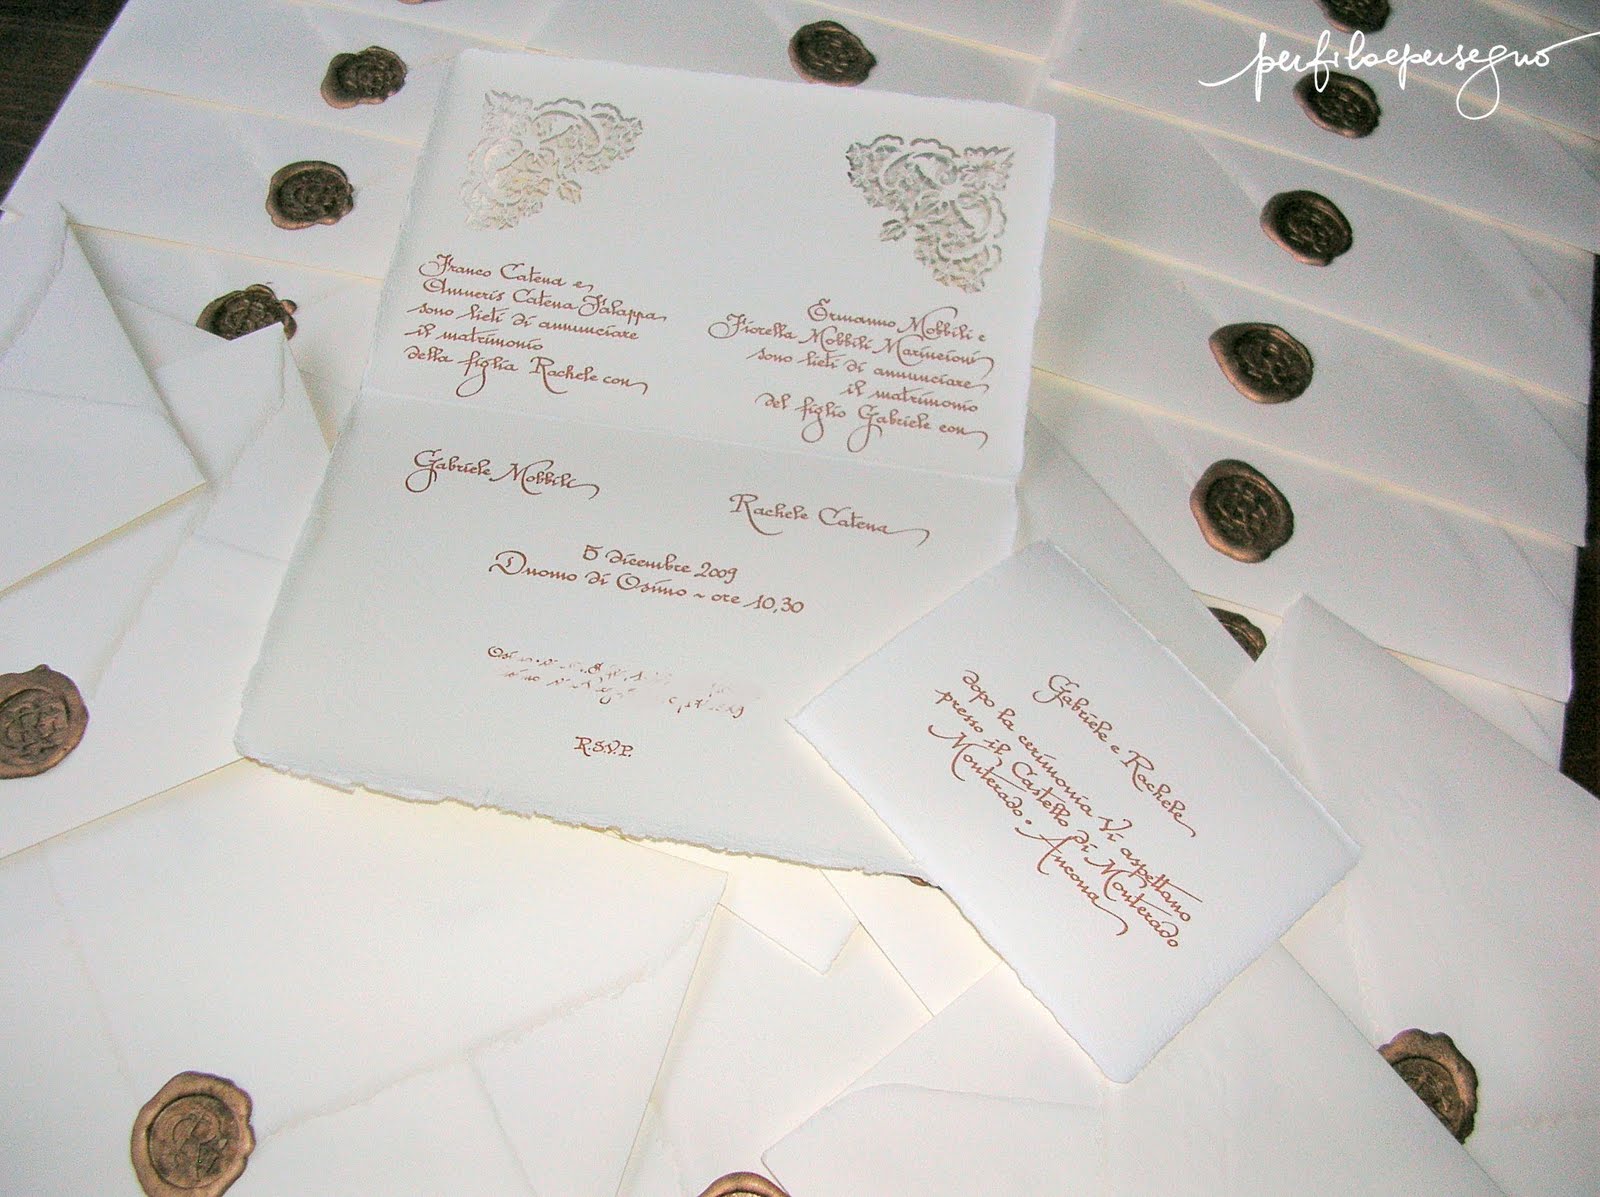 perfiloepersegno
Franco Catena e
Amneris Catena Falappa
sono lieti di annunciare
il matrimonio
della figlia Rachele con
Ermanno Mobbili e
Fiorella Mobbili Marincioni
sono lieti di annunciare
il matrimonio
del figlio Gabriele con
Gabriele Mobbili
Rachele Catena
5 dicembre 2009
Duomo di Osimo ~ ore 10,30
R.S.V.P.
Gabriele e Rachele
dopo la cerimonia Vi aspettano
presso il Castello di Monterado
Monterado • Ancona